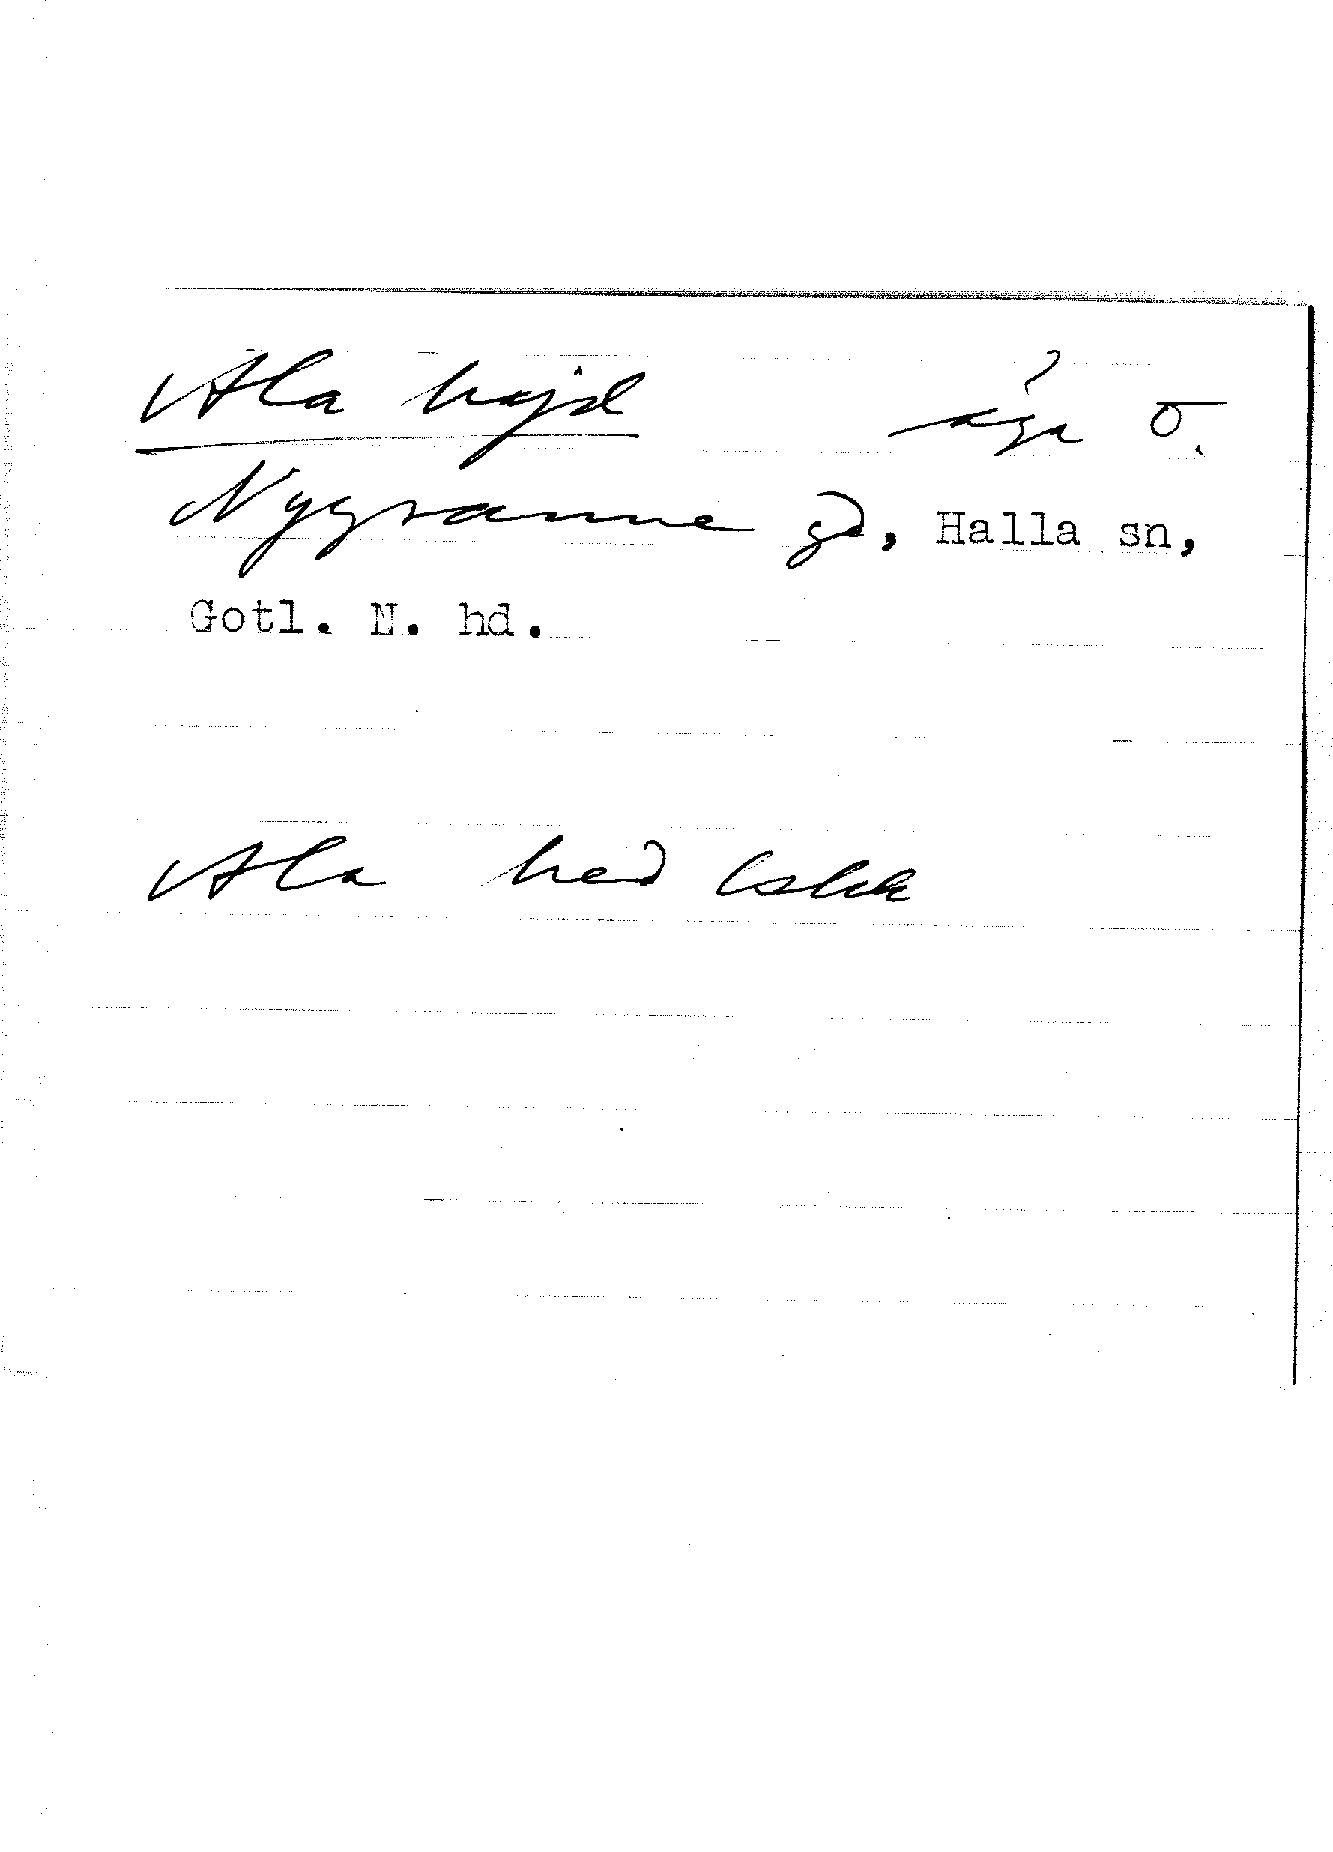 Ala hajd åga o.
Nygranne gd, Halla sn,
Gotl. N. hd.
Ala hed